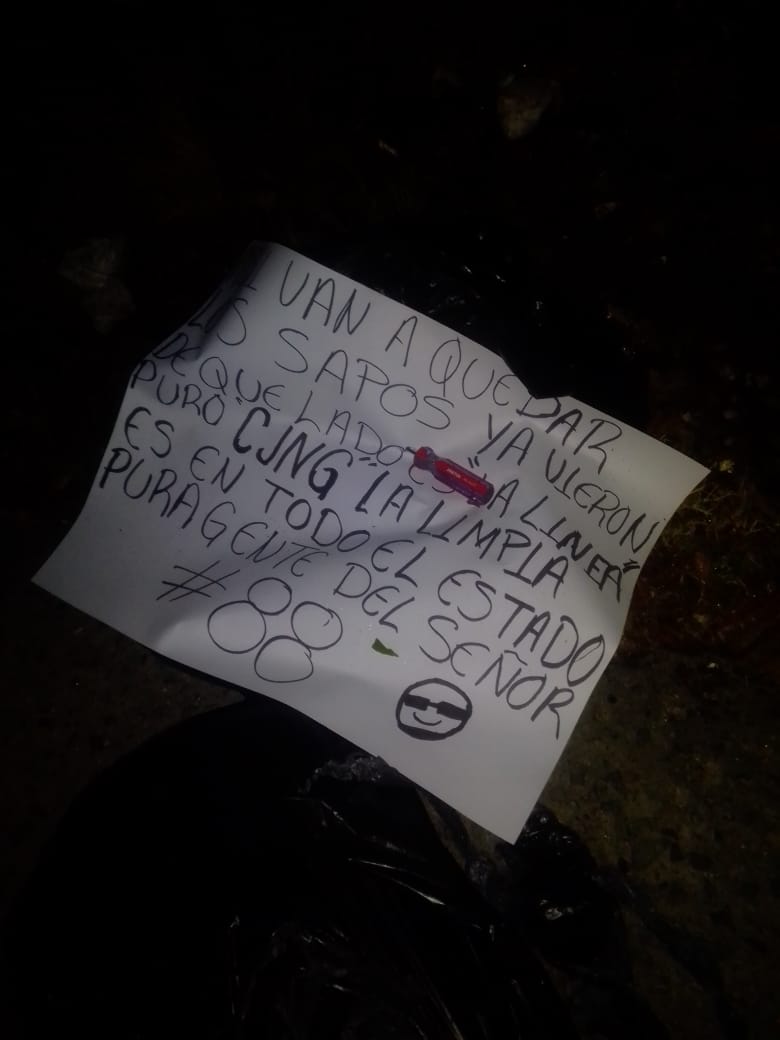 VAN A QUEDAR
LOS SAPOS YA VIERON
DE QUE LADO ES "LA LINEA"
PURO "CJNG" LA LIMPIA
ES EN TODO EL ESTADO
PURA GENTE DEL SEÑOR
# 88